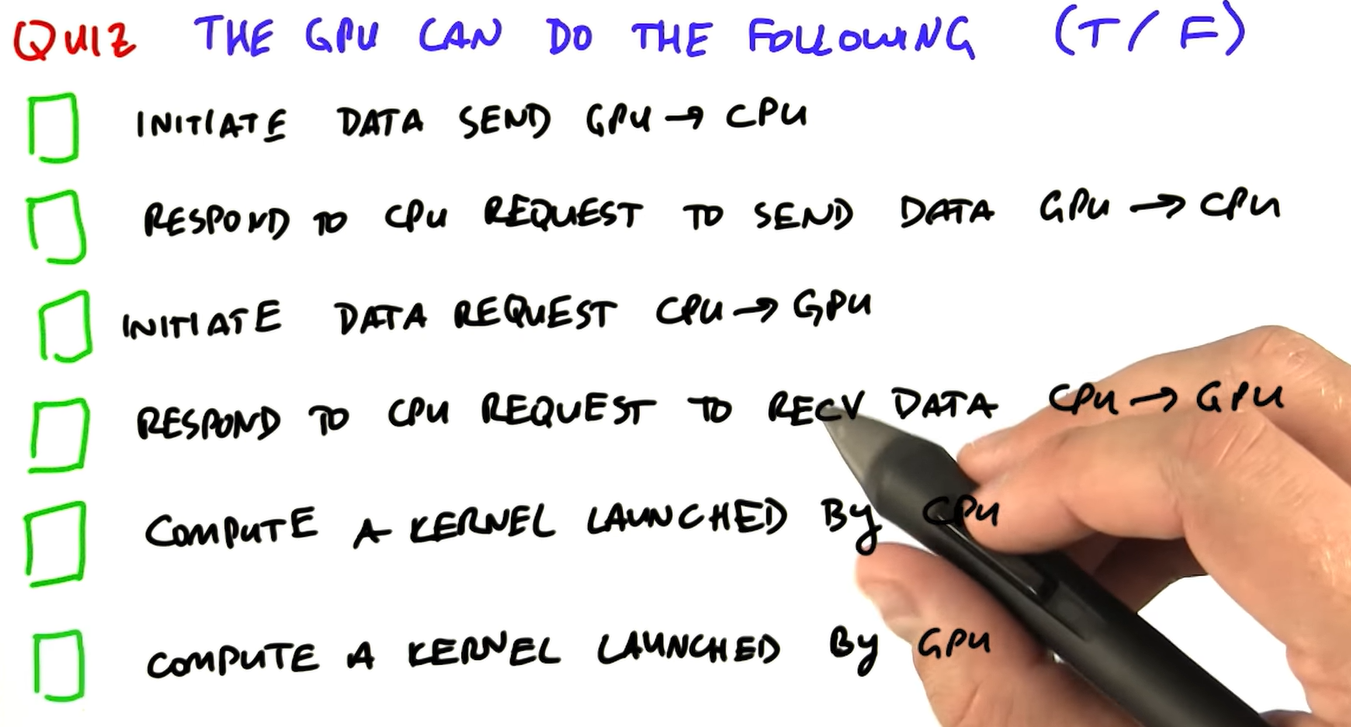 QUIZ THE GPU CAN DO THE FOLLOWING (T/F)
INITIATE DATA SEND GPU → CPU
RESPOND TO CPU REQUEST TO SEND DATA GPU → CPU
INITIATE DATA REQUEST CPU → GPU
RESPOND TO CPU REQUEST TO RECV DATA CPU → GPU
COMPUTE A KERNEL LAUNCHED By CPU
COMPUTE A KERNEL LAUNCHED By GPU